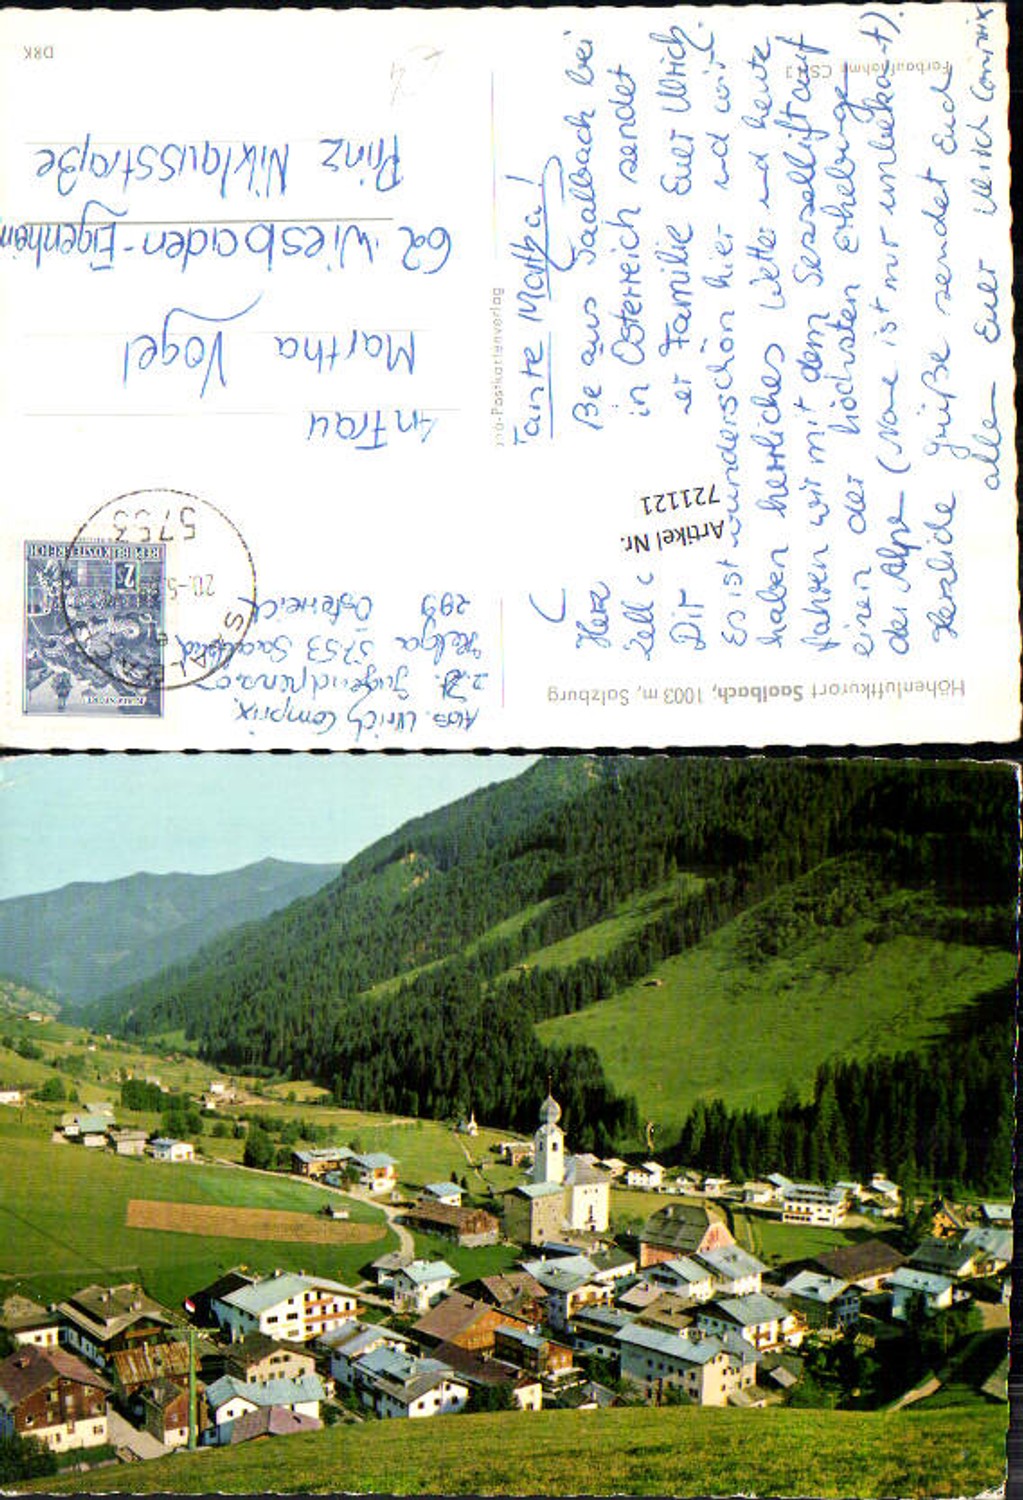 Höhenluftkurort Saalbach, 1003 m, Salzburg
Abs. Ulrich Comprix
z. Zt. Jugendpension
Helga 5753 Saalbach
289 Österreich
REPUBLIK ÖSTERREICH
5753
Artikel Nr.
721121
An Frau
Martha Vogel
62 Wiesbaden-Eigenheim
Prinz Niklausstraße
Tante Martha!
Herz Be aus Saalbach bei
Zell in Österreich sendet
Dir er Familie Euer Ulrich
Es ist wunderschön hier und wir
haben herrliches Wetter und heute
fahren wir mit dem Sessellift auf
einen der höchsten Erhebungen
der Alpen (Name ist mir unbekannt).
Herzliche Grüße sendet Euch
allen Euer Ulrich Comprix
Postkartenverlag
Farbaufnahme CS
D8K